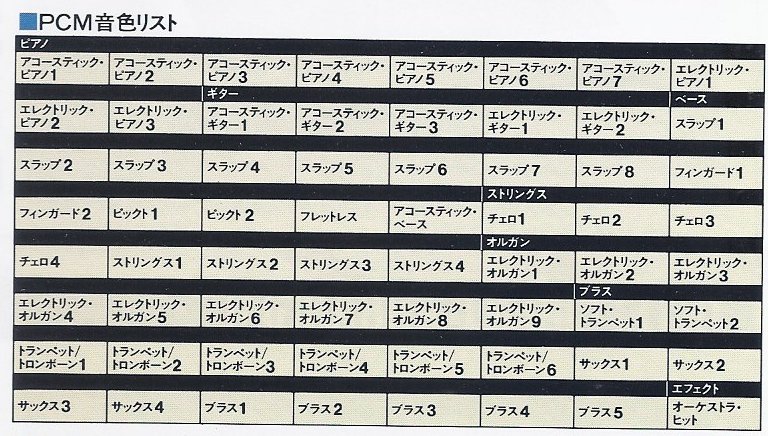 ■PCM音色リスト
ピアノ
アコースティック・ピアノ1 アコースティック・ピアノ2 アコースティック・ピアノ3 アコースティック・ピアノ4 アコースティック・ピアノ5 アコースティック・ピアノ6 アコースティック・ピアノ7 エレクトリック・ピアノ1
ギター ベース
エレクトリック・ピアノ2 エレクトリック・ピアノ3 アコースティック・ギター1 アコースティック・ギター2 アコースティック・ギター3 エレクトリック・ギター1 エレクトリック・ギター2 スラップ1
スラップ2 スラップ3 スラップ4 スラップ5 スラップ6 スラップ7 スラップ8 フィンガード1
ストリングス
フィンガード2 ピックト1 ピックト2 フレットレス アコースティック・ベース チェロ1 チェロ2 チェロ3
オルガン
チェロ4 ストリングス1 ストリングス2 ストリングス3 ストリングス4 エレクトリック・オルガン1 エレクトリック・オルガン2 エレクトリック・オルガン3
ブラス
エレクトリック・オルガン4 エレクトリック・オルガン5 エレクトリック・オルガン6 エレクトリック・オルガン7 エレクトリック・オルガン8 エレクトリック・オルガン9 ソフト・トランペット1 ソフト・トランペット2
トランペット/トロンボーン1 トランペット/トロンボーン2 トランペット/トロンボーン3 トランペット/トロンボーン4 トランペット/トロンボーン5 トランペット/トロンボーン6 サックス1 サックス2
エフェクト
サックス3 サックス4 ブラス1 ブラス2 ブラス3 ブラス4 ブラス5 オーケストラ・ヒット